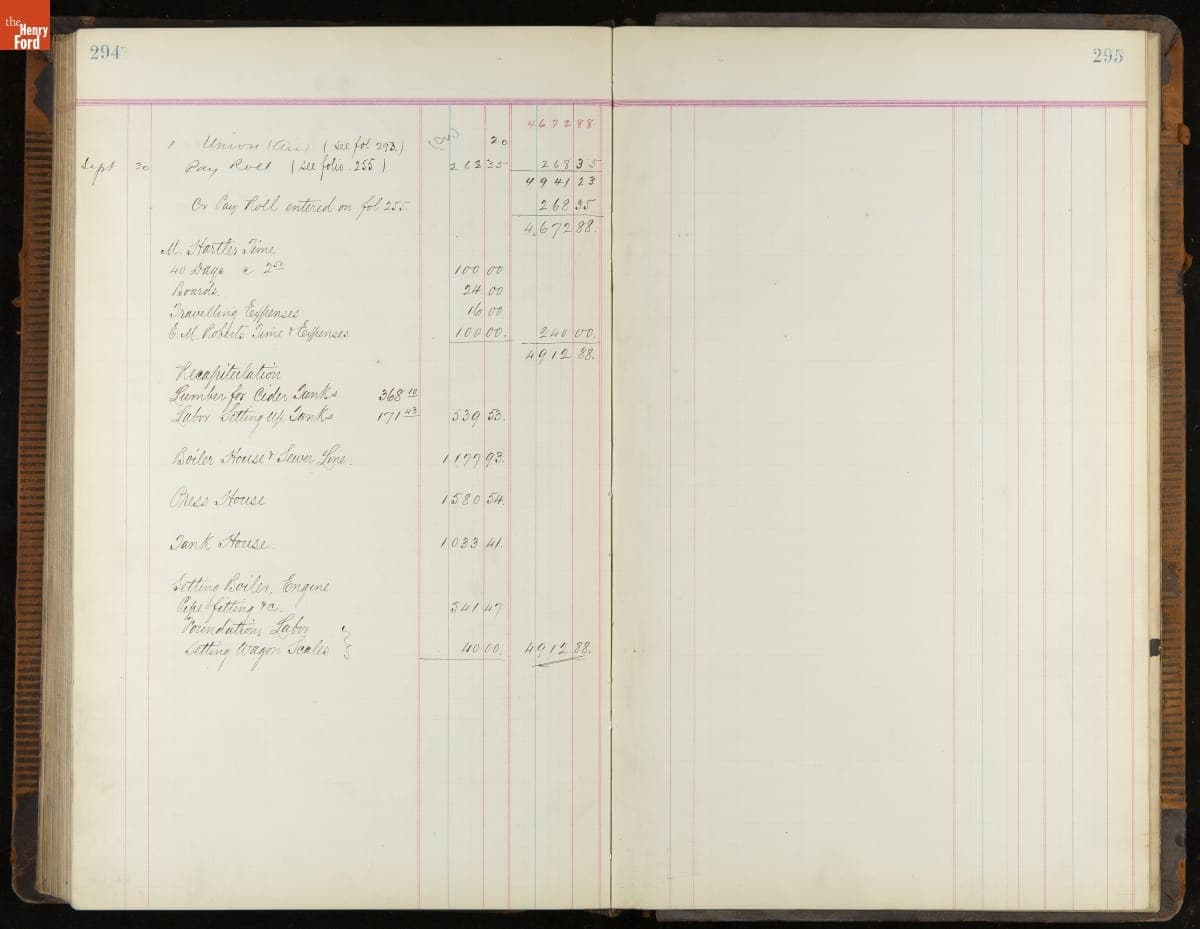 the Henry Ford
294
295
4672 88
1 Union (See fol 293.) (Cr) 20
Sept 30 Pay Roll (See folio 255) 268 35 268 35
4941 23
Cr Pay Roll entered on fol 255. 268 35
4,672 88.
M. Hartley Time
40 Days @ 2 50 100 00
Boards. 24 00
Travelling Expenses 16 00
E. M. Roberts Time & Expenses 100 00. 240 00.
4912 88.
Recapitulation
Lumber for Cider Tanks 368 10
Labor Setting up Tanks 171 43 539 53.
Boiler House & Sewer Line. 1177 93.
Press House 1580 54.
Tank House. 1033 41.
Setting Boiler, Engine
Pipe fitting &c. 541 47
Foundations, Labor
Setting Wagon Scales } 40 00. 4912 88.